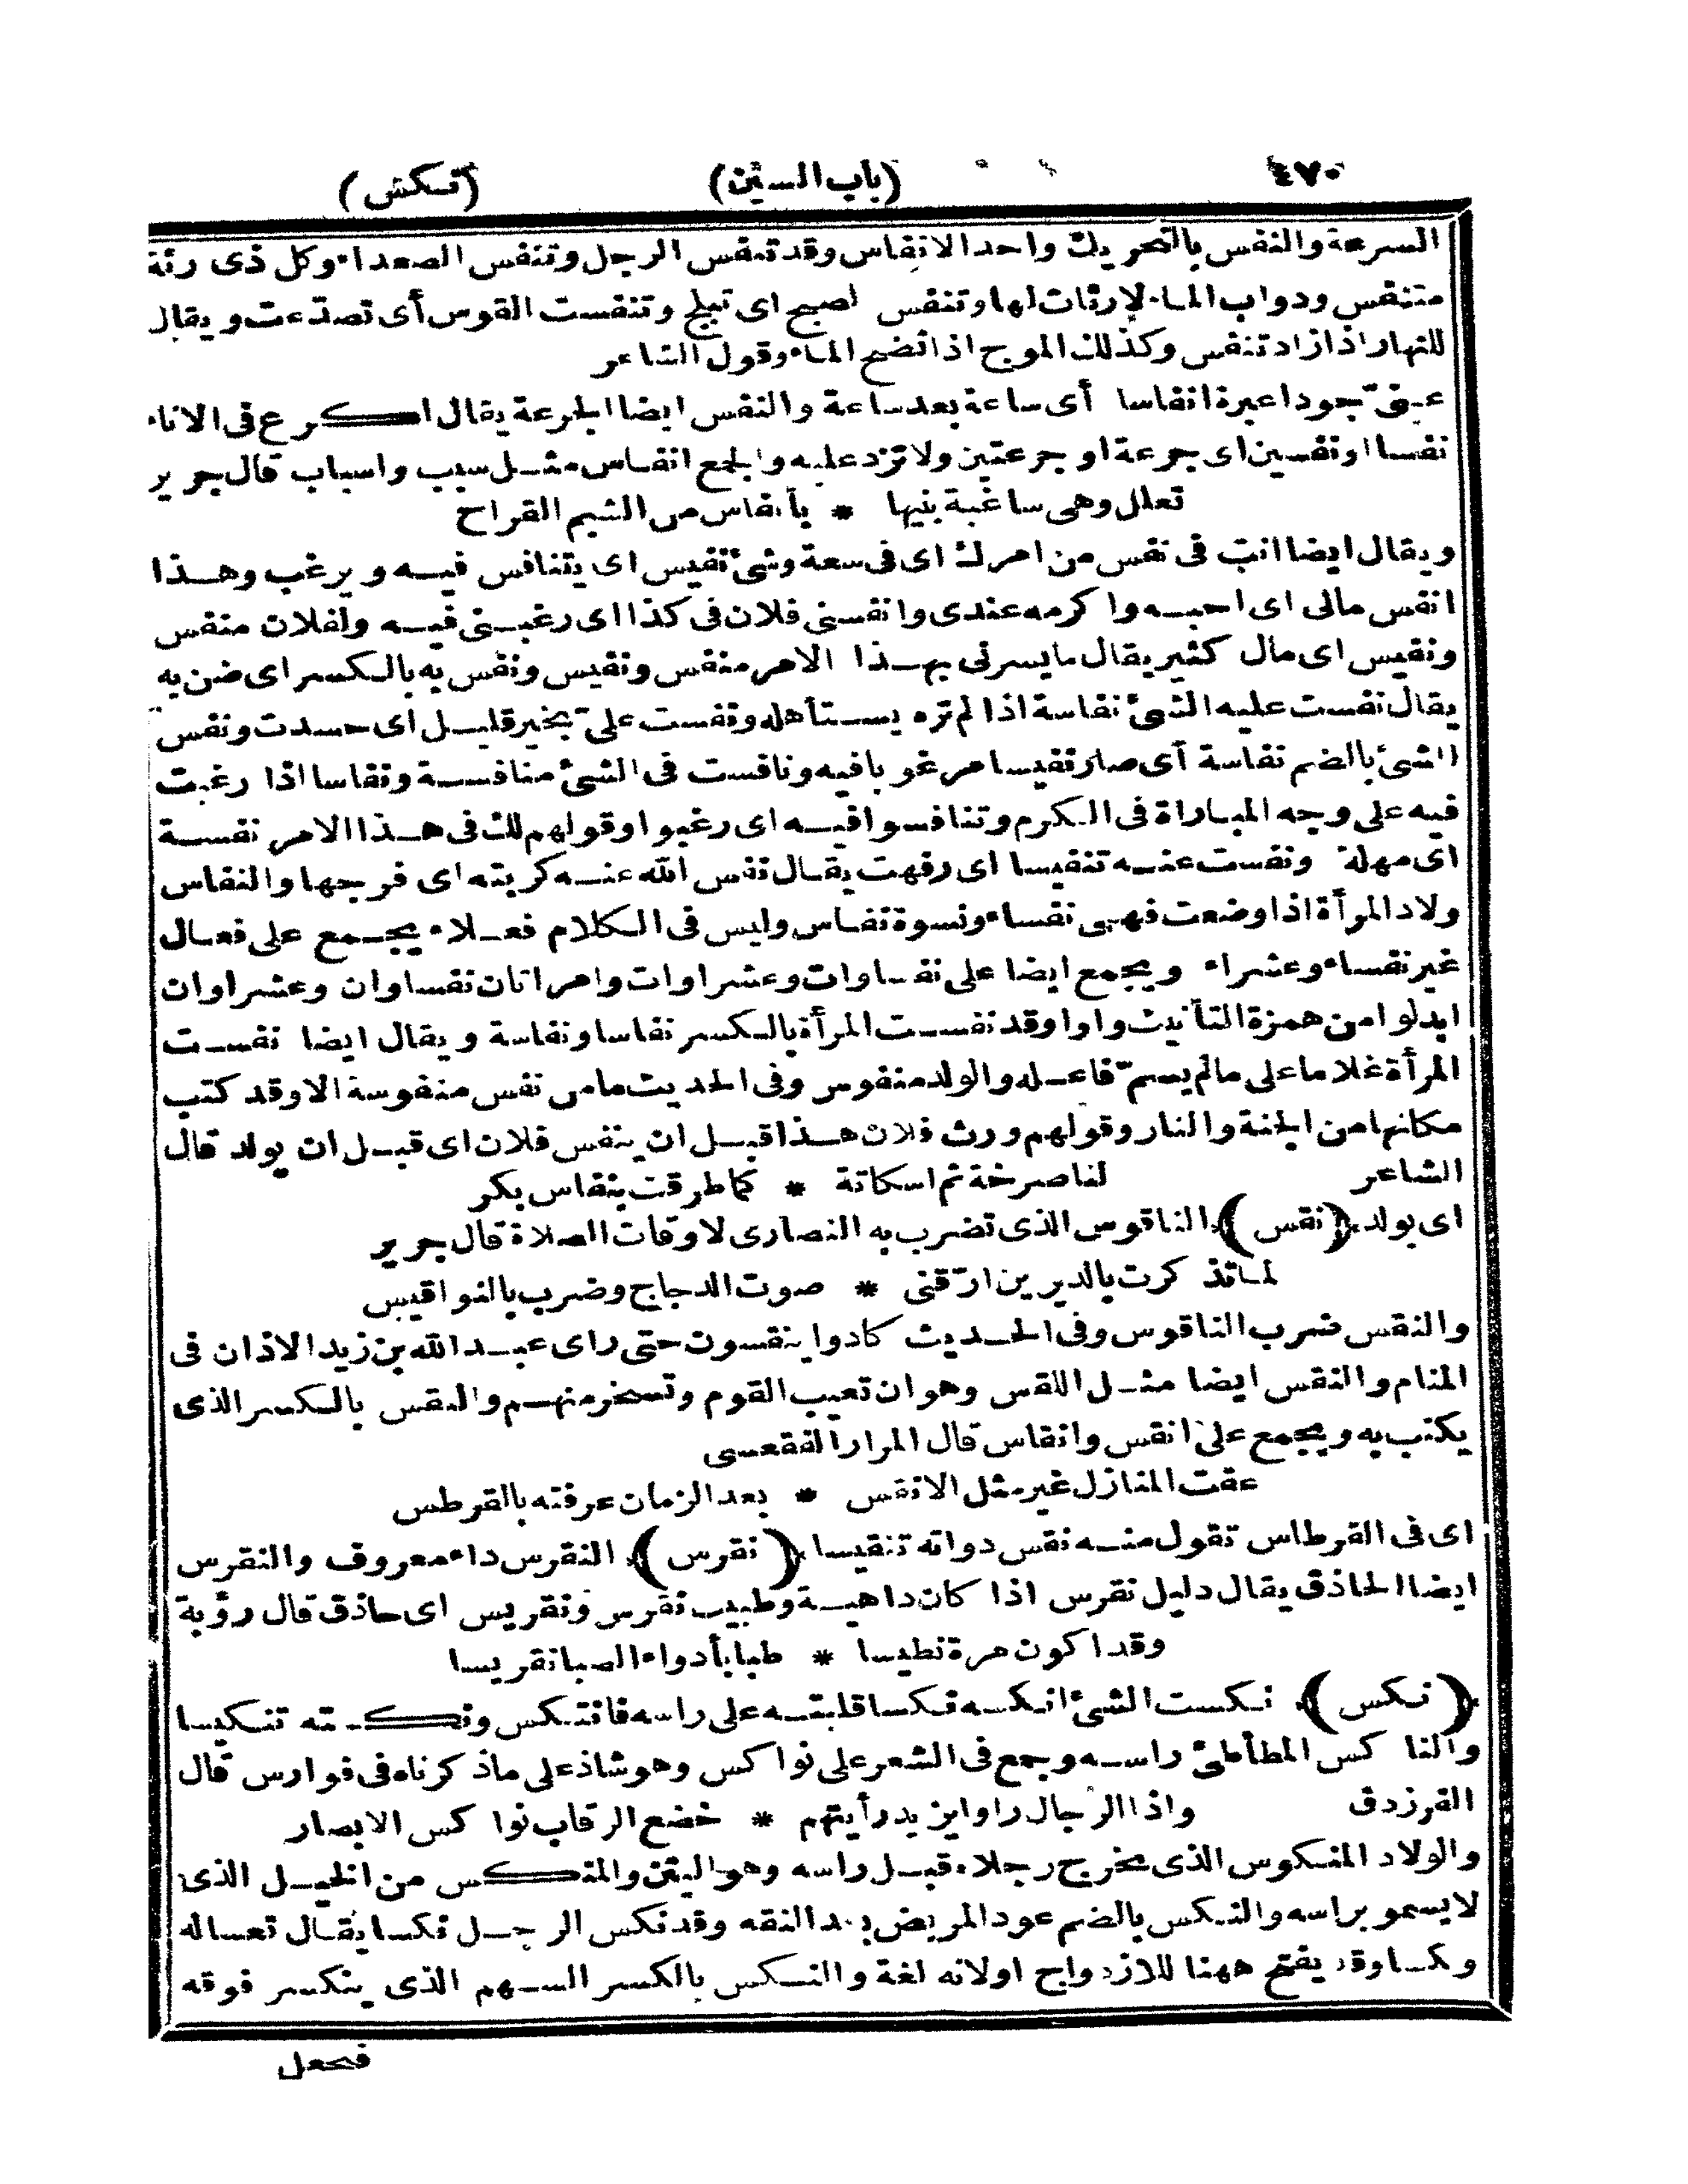 ٤٧٠ (باب السين) (نكس)
السرعة والنفس بالتحريك واحد الانفاس وقد تنفس الرجل وتنفس الصعداء وكل ذى رئة
متنفس ودواب الماء لارئات لها وتنفس الصبح اى تبلج وتنفست القوس أى تصدّعت ويقال
للنهار اذا زاد تنفس وكذلك الموج اذا نضح الماء وقول الشاعر
عينىّ جودا عبرة انفاسا أى ساعة بعد ساعة والنفس ايضا الجرعة يقال اكرع فى الاناء
نفسا او نفسين اى جرعة او جرعتين ولا تزد عليه والجمع انفاس مثل سبب واسباب قال جرير
تعلل وهى ساغبة بنيها * بأنفاس من الشبم القراح
ويقال ايضا انت فى نفس من امرك اى فى سعة وشئ نفيس اى يتنافس فيه ويرغب وهذا
انفس مالى اى احبه واكرمه عندى وانفسنى فلان فى كذا اى رغبنى فيه ولفلان منفس
ونفيس اى مال كثير يقال ما يسرنى بهذا الامر منفس ونفيس ونفس به بالكسر اى ضن به
يقال نفست عليه الشئ نفاسة اذا لم تره يستأهله ونفست علىّ بخير قليل اى حسدت ونفس
الشئ بالضم نفاسة أى صار نفيسا مرغوبا فيه ونافست فى الشئ منافسة ونفاسا اذا رغبت
فيه على وجه المباراة فى الكرم وتنافسوا فيه اى رغبوا وقولهم لك فى هذا الامر نفسة
اى مهلة ونفست عنه تنفيسا اى رفهت يقال نفس الله عنه كربته اى فرجها والنفاس
ولاد المرأة اذا وضعت فهى نفساء ونسوة نفاس وليس فى الكلام فعلاء يجمع على فعال
غير نفساء وعشراء ويجمع ايضا على نفساوات وعشراوات وامراتان نفساوان وعشراوان
ابدلوا من همزة التأنيث واوا وقد نفست المرأة بالكسر نفاسا ونفاسة ويقال ايضا نفست
المرأة غلاما على مالم يسمّ فاعله والولد منفوس وفى الحديث ما من نفس منفوسة الا وقد كتب
مكانها من الجنة والنار وقولهم ورث فلان هذا قبل ان ينفس فلان اى قبل ان يولد قال
الشاعر لنا صرخة ثم اسكاتة * كما طرقت بنفاس بكر
اى بولد (نقس) الناقوس الذى تضرب به النصارى لاوقات الصلاة قال جرير
لما تذكرت بالديرين ارّقنى * صوت الدجاج وضرب بالنواقيس
والنقس ضرب الناقوس وفى الحديث كادوا ينقسون حتى راى عبد الله بن زيد الاذان فى
المنام والنقس ايضا مثل اللقس وهو ان تعيب القوم وتسخر منهم والنقس بالكسر الذى
يكتب به ويجمع على انقس وانقاس قال المرار الفقعسى
عفت المنازل غير مثل الانقس * بعد الزمان عرفته بالقرطس
اى فى القرطاس تقول منه نقس دواته تنقيسا (نقرس) النقرس داء معروف والنقرس
ايضا الحاذق يقال دليل نقرس اذا كان داهية وطبيب نقرس ونقريس اى حاذق قال رؤبة
وقد اكون مرة نطيسا * طبا بأدواء الصبا نقريسا
(نكس) نكست الشئ انكسه نكسا قلبته على راسه فانتكس ونكسته تنكيسا
والناكس المطأطئ راسه وجمع فى الشعر على نواكس وهو شاذ على ماذكرناه فى فوارس قال
الفرزدق واذا الرجال راوا يزيد رأيتهم * خضع الرقاب نواكس الابصار
والولاد المنكوس الذى يخرج رجلاه قبل راسه وهو اليتن والمنكس من الخيل الذى
لا يسمو براسه والنكس بالضم عود المريض بعد النقه وقد نكس الرجل نكسا يقال تعسا له
ونكسا وقد يفتح ههنا للازدواج او لانه لغة والنكس بالكسر السهم الذى ينكسر فوقه
فيجعل